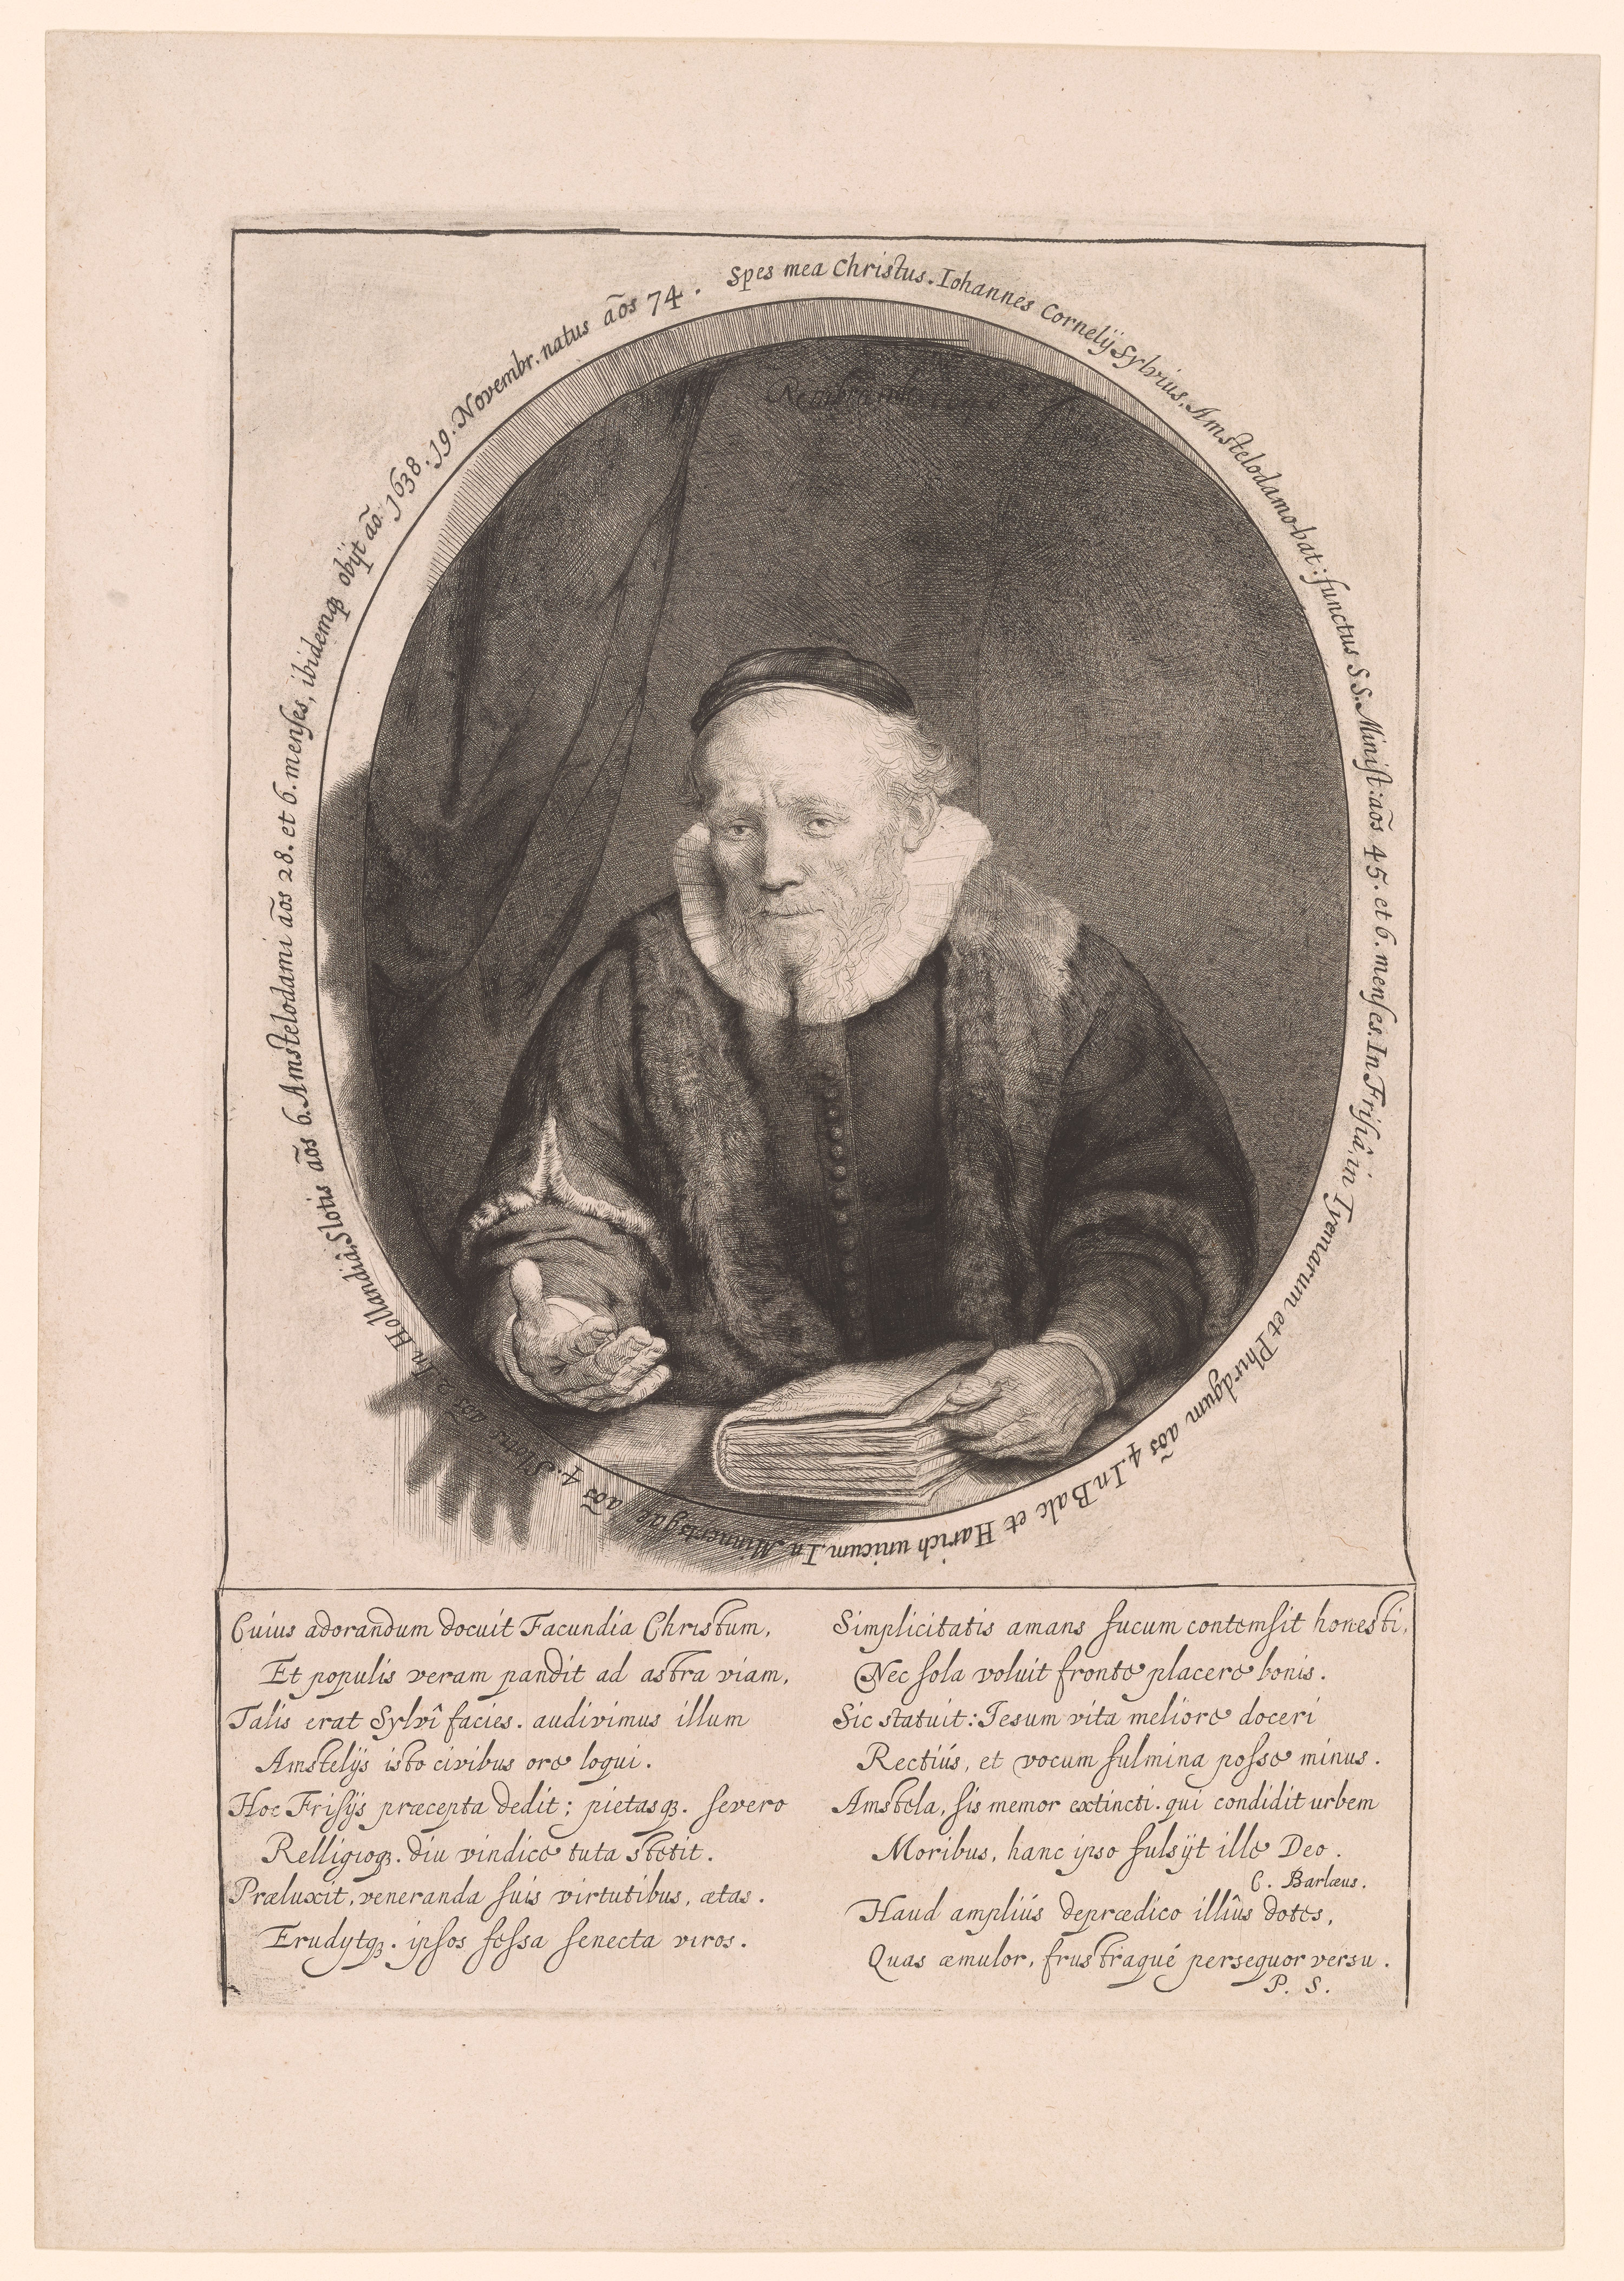 Spes mea Christus. Iohannes Cornelÿ Sylvius, Amstelodamobat: functus S S. Minist: aõs 45. et 6. menses. In Frisiâ, in Tyemarum et Phirdgum aõs 4. In Balc et Harich unicum. In Minnertsgae aõs 4. Slotis aõs 2. In Hollandiâ, Slotis aõs 6. Amstelodami aõs 28. et 6. menses, ibidemqꝫ obÿt aõ. 1638. 19. Novembr. natus aõs 74.
Rembrandt
Cuius adorandum docuit Facundia Christum,
Et populis veram pandit ad astra viam,
Talis erat Sylvî facies. audivimus illum
Amstelÿs isto civibus ore loqui.
Hoc Frisÿs præcepta dedit; pietasqꝫ. severo
Relligioqꝫ. diu vindice tuta stetit.
Præluxit, veneranda suis virtutibus, ætas.
Erudytqꝫ. ipsos fessa senecta viros.
Simplicitatis amans fucum contemsit honesti,
Nec sola voluit fronte placere bonis.
Sic statuit: Iesum vita meliore doceri
Rectiús, et vocum fulmina posse minus.
Amstela, sis memor extincti. qui condidit urbem
Moribus, hanc ipso fulsÿt ille Deo.
C. Barlæus.
Haud ampliús deprædico illîus dotes,
Quas æmulor, frustraqué persequor versu.
P. S.